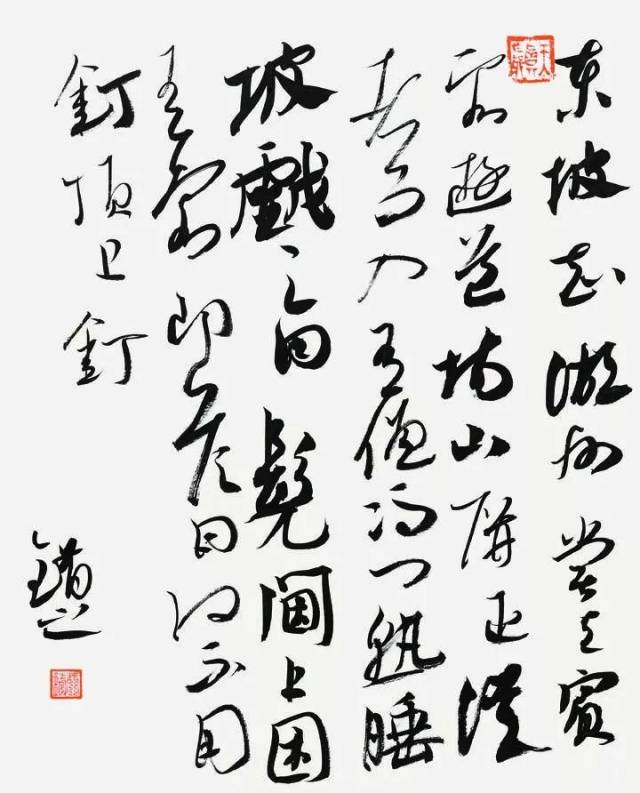 東坡知湖州嘗與賓
客遊道場山屏退從
者而入有僧馮門熟睡
坡戲之曰髡閫上困
有客即答曰何不用
釘頂上釘